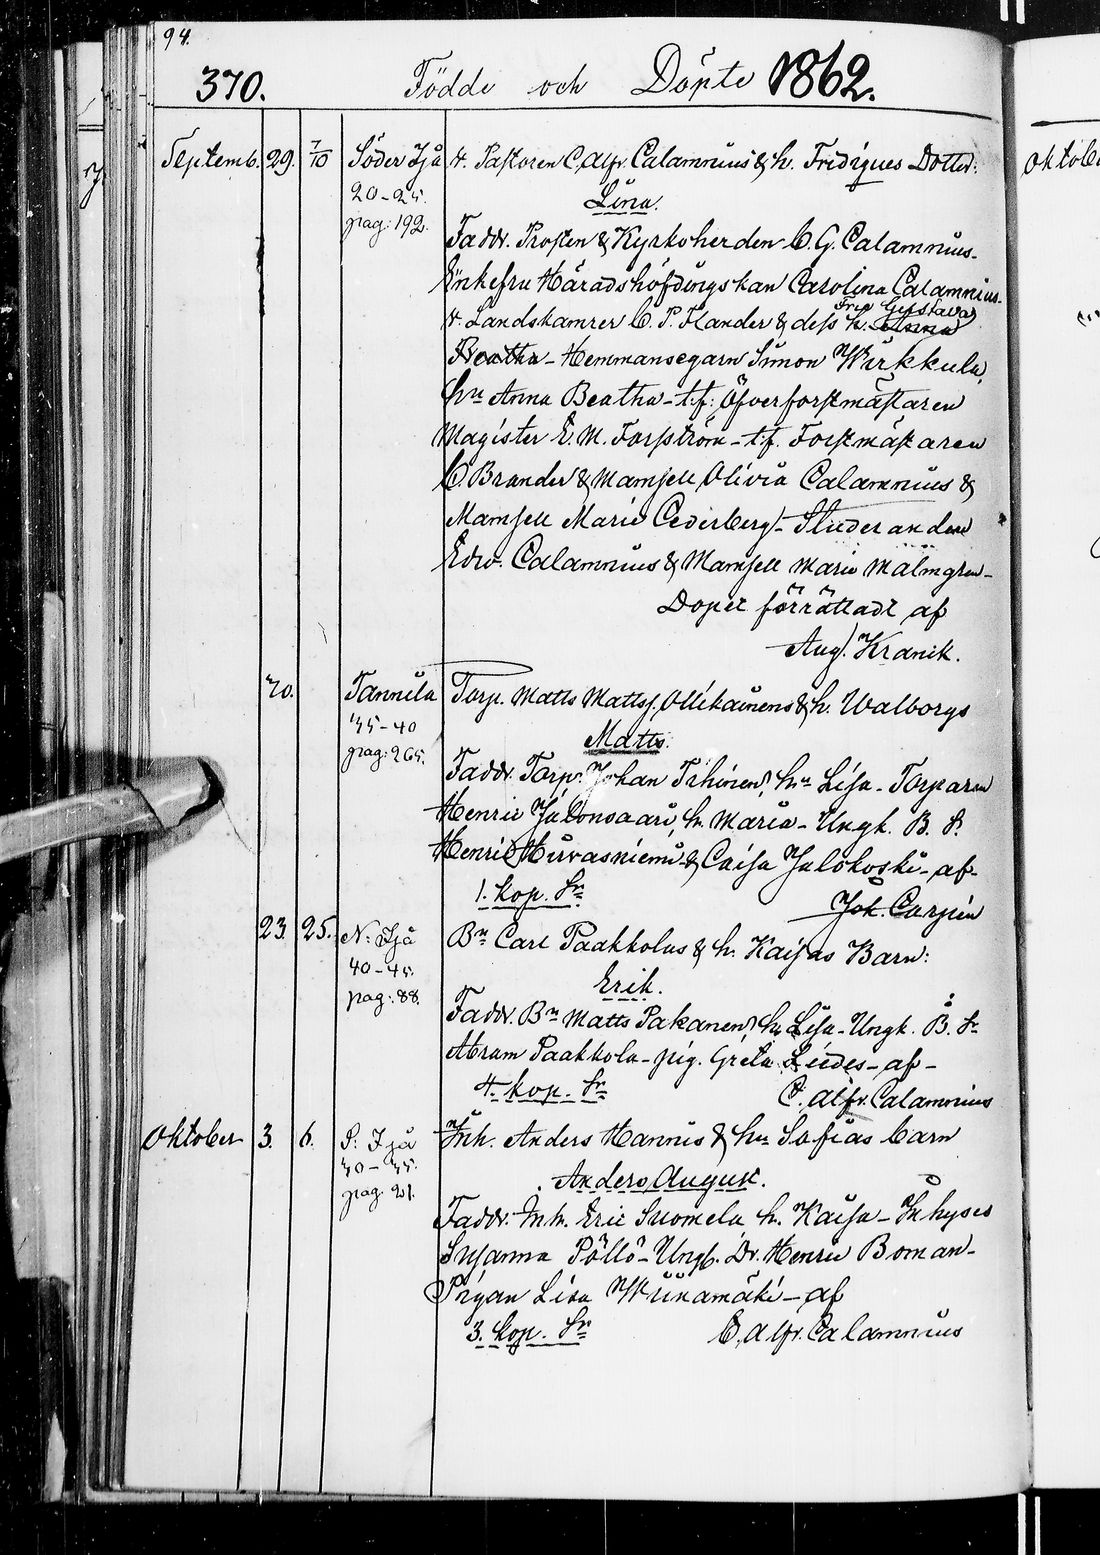 94.
370. Födde och Döpte 1862.
Septemb. 29. 7/10 Söder Ijå V. Pastoren C. Alfr. Calamnius & h. Fridiques Dotter:
20-25. Lina.
pag: 192. Faddr. Prosten & Kyrkoherden C. G. Calamnius-
Enkefru Häradshöfdingskan Carolina Calamnius-
V. Landskamrer C. P. Flander & dess h. Anna Fru Gustava
Beatha - Hemmansegarn Simon Wirkkula,
hu Anna Beatha - t.f. Öfverforstmästaren
Magister E. M. Forsström - t.f. Forstmästaren
C Brander & Mamsell Olivia Calamnius &
Mamsell Marie Cederberg - Studeranden
Edv. Calamnius & Mamsell Marie Malmgren-
Dopet förrättadt af
Aug. Kranik.
Tannila Torp. Matts Mattss. Ollikainens & h. Walborgs
35-40 Matts.
pag: 265. Faddr. Torp. Johan Tihinen, hu Lisa - Torparen
Henric Jakonsaari, h. Maria - Ungk. B. S.
Henric Hirvasniemi & Caisa Jalokoski - af-
1. kop. Sr Joh. Carpén
23. 25. N. Ijå Bn Carl Paakkolas & h. Kaisas Barn:
40-45. Erik.
pag: 88. Faddr. Bn Matts Pakanen, hu Lisa - Ungk. B. Sn
Abram Paakkola - pig. Greta Liedes - af -
4. kop. Sr C. Alfr. Calamnius
Oktober 3. 6. S. Ijå Inh. Anders Hannus & hus Sofias barn
Anders August.
pag: 21. Faddr. Inh. Eric Suomela h. Kaisa - Inhyses
Susanna Pöllö - Ungk. Dr. Henric Boman-
Pigan Lisa Wiinamäki - af
3. kop. Sr C. Alfr. Calamnius
Oktober